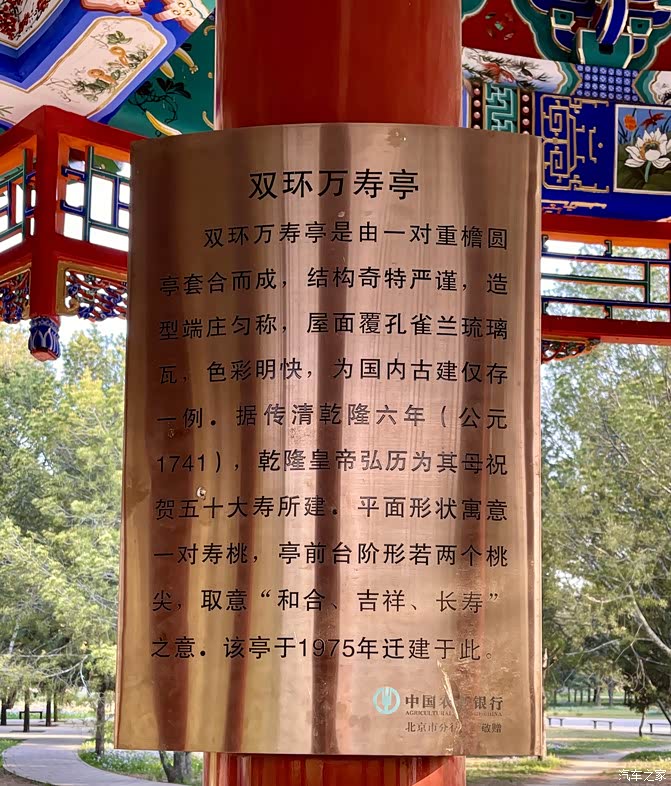 双环万寿亭
双环万寿亭是由一对重檐圆
亭套合而成，结构奇特严谨，造
型端庄匀称，屋面覆孔雀兰琉璃
瓦，色彩明快，为国内古建仅存
一例．据传清乾隆六年（公元
1741），乾隆皇帝弘历为其母祝
贺五十大寿所建．平面形状寓意
一对寿桃，亭前台阶形若两个桃
尖，取意“和合、吉祥、长寿”
之意．该亭于1975年迁建于此。
中国农业银行
AGRICULTURAL
北京市分行 敬赠
汽车之家